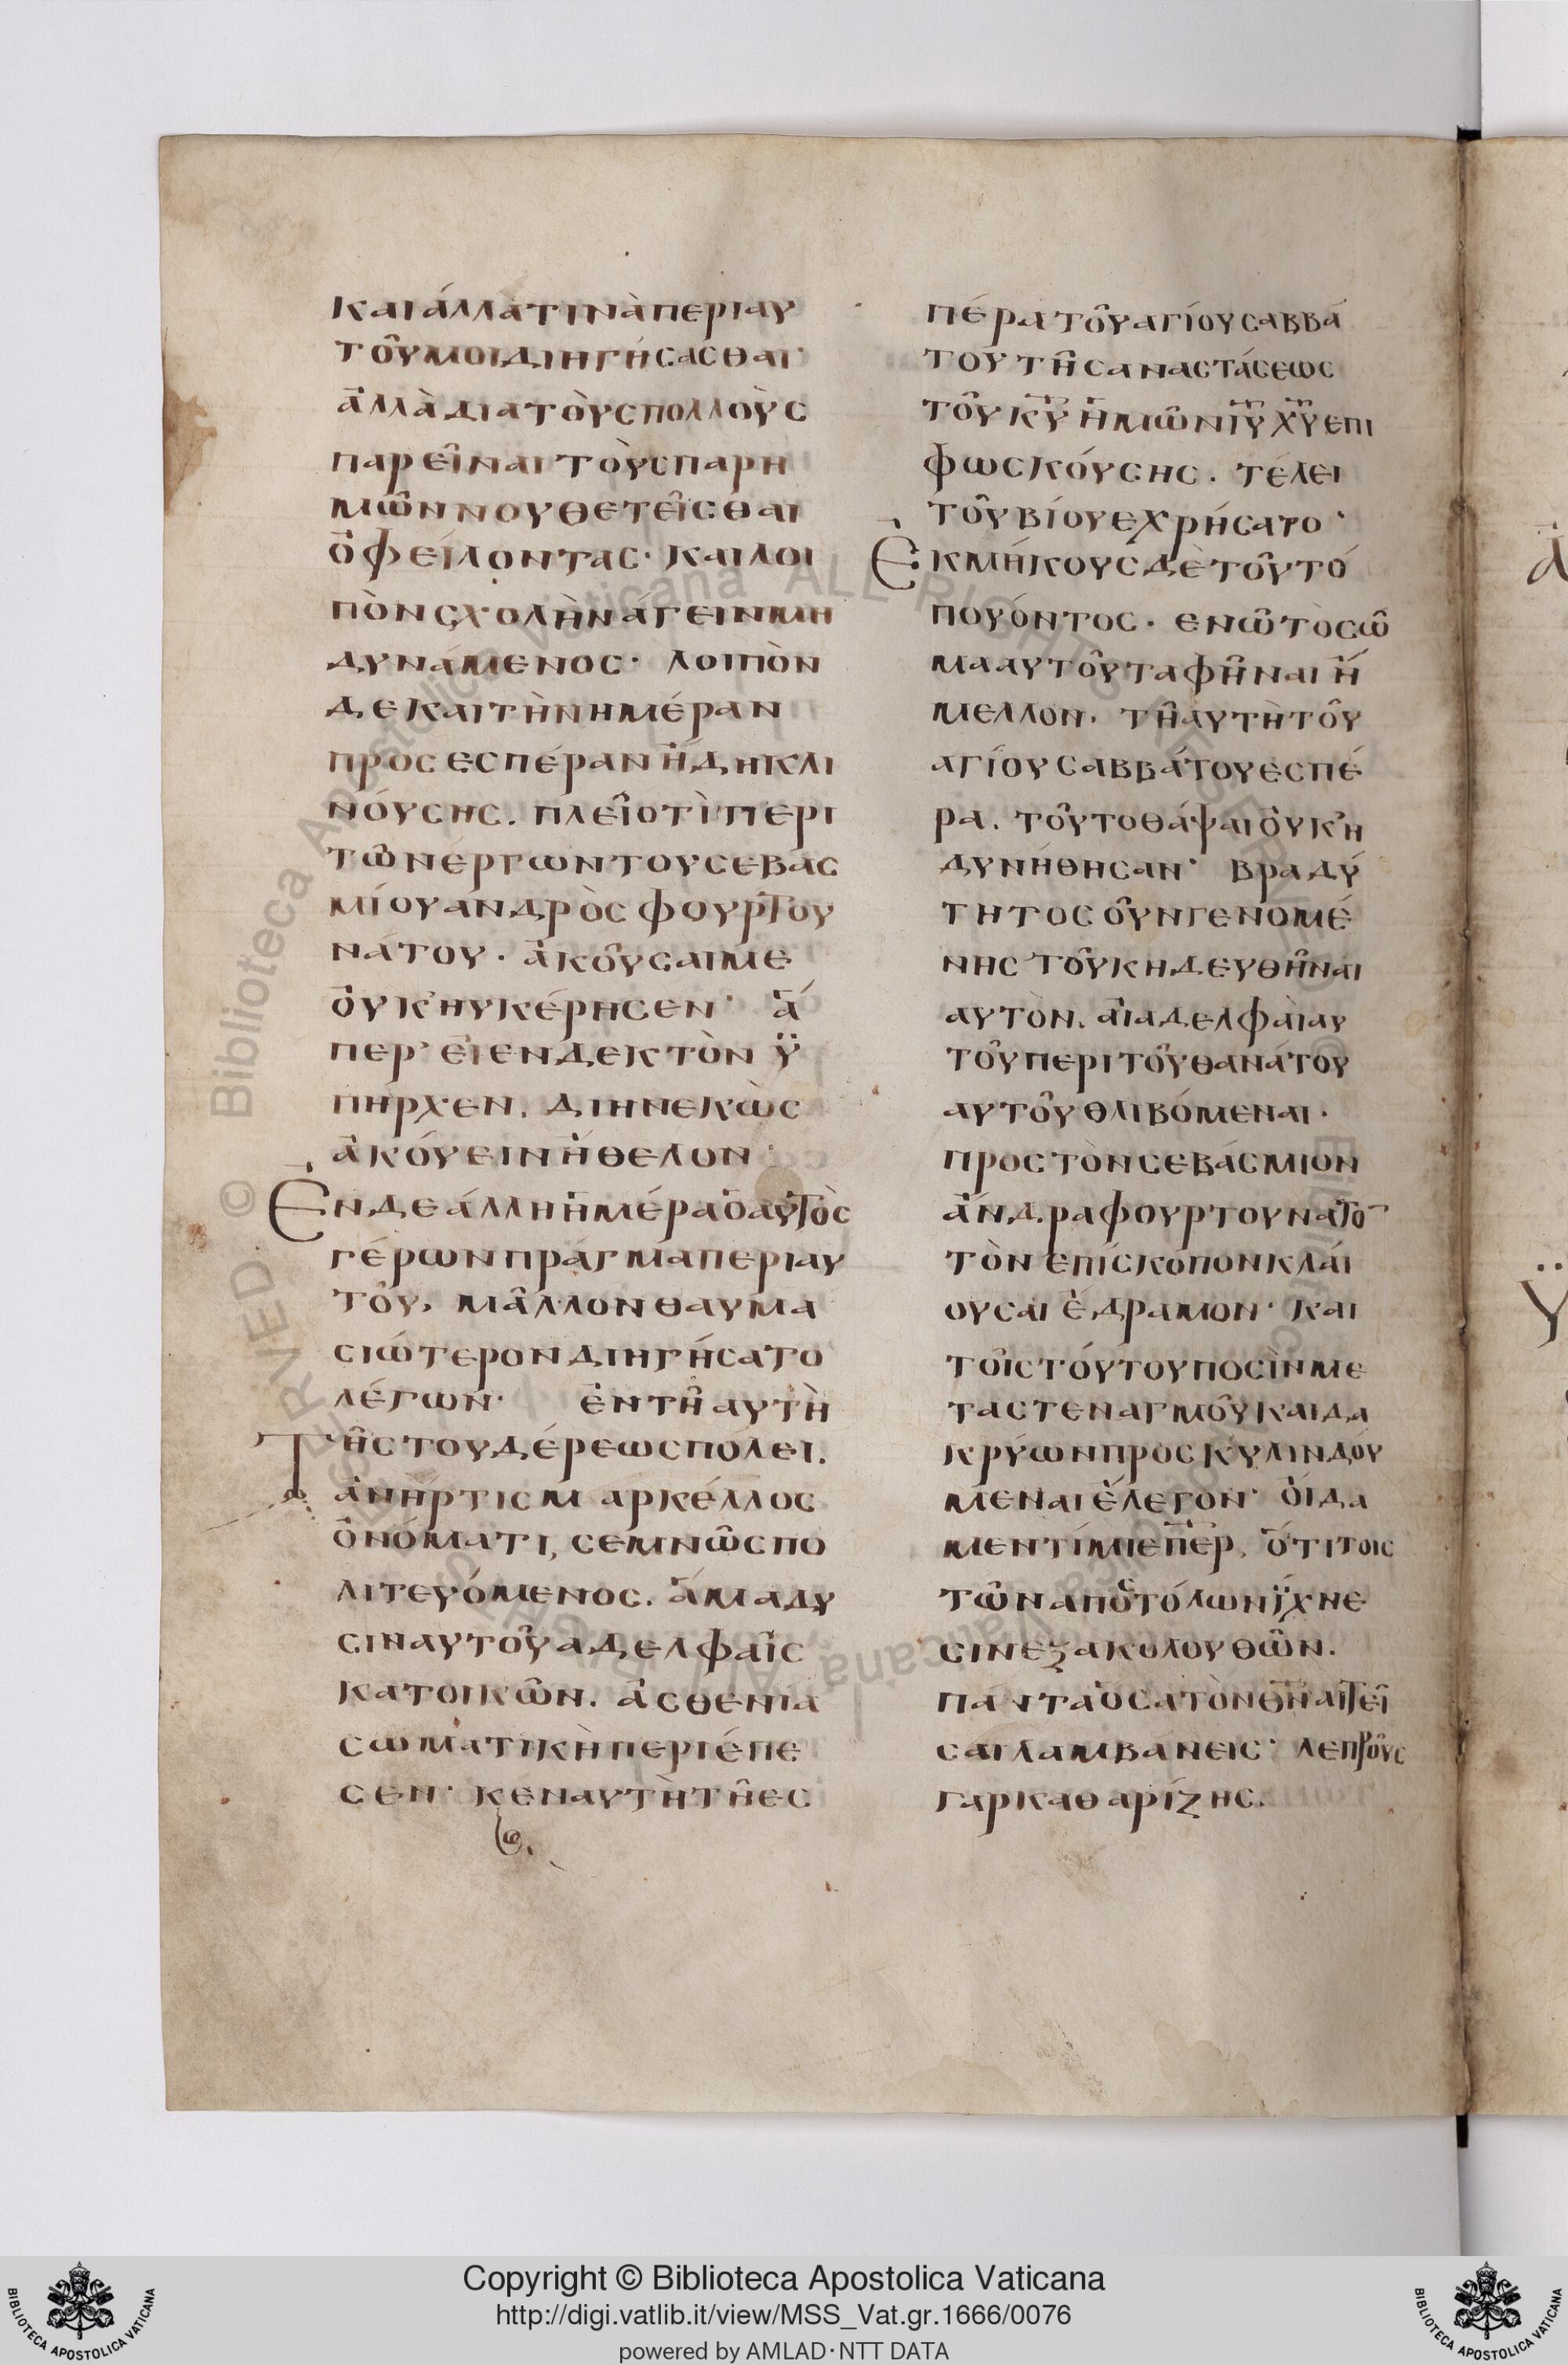 και άλλα τινὰ περι αυ
τοῦ μοι διηγήσασθαι·
ἀλλὰ δια τοὺς πολλοὺς
παρεῖναι τοὺς παρ η
μῶν νουθετεῖσθαι
ὀφείλοντας· και λοι
πὸν σχολὴν άγειν μη
δυνάμενος· λοιπὸν
δε και τὴν ημέραν
προς εσπέραν ἤδη κλι
νόυσης. πλεῖοτὶ περι
τῶν έργων του σεβασ
μίου ανδρὸς φουρτου
νάτου· ἀκοῦσαι με
ὀυκ' ηυκέρησεν· ἅ
περ' εἰ ενδεκτὸν ϋ
πήρχεν. διηνεκὼς
ἀκόυειν ἠθελον·
Ἐν δε άλλη ἡμέρα ὁ αυτὸς
γέρων πράγμα περι αυ
τοῦ, μᾶλλον θαυμα
σιώτερον διηγήσατο
λέγων· ἐν τῆ αυτὴ
Τῆς τουδέρεως πόλει.
ἀνήρ τις μαρκέλλος
ὀνόματι, σεμνῶς πο
λιτευόμενος. ἅμα δυ
σιν αυτοῦ αδελφαῖς
κατοικῶν. ἀσθενια
σωματικὴ περιέπε
σεν· κεν αυτὴ τῆ εσ
πέρα τοῦ αγίου σαββά
του τῆς αναστάσεως
τοῦ κ̅υ̅ ἡμῶν ι̅υ̅ χ̅υ̅ επι
φωσκόυσης. τέλει
τοῦ βίου εχρήσατο·
Ἐκ μήκους δὲ τοῦ τό
που όντος· εν ὧ τὸ σῶ
μα αυτοῦ ταφῆναι ἤ
μελλον. τῆ αυτὴ τοῦ
αγίου σαββάτου εσπέ
ρα. τοῦτο θάψαι ὀυκ' η
δυνήθησαν· βραδύ
τητος οῦν γενομέ
νης τοῦ κηδευθῆναι
αυτὸν. ἁι αδελφὰι αυ
τοῦ περι τοῦ θανάτου
αυτοῦ θλιβόμεναι.
προς τὸν σεβάσμιον
ἄνδρα φουρτουνατο̅
τὸν επίσκοπον κλάι
ουσαι ἔδραμον· και
τοῖς τόυτου ποσὶν με
τα στεναγμοῦ και δα
κρύων προσκυλινδόυ
μεναι ἔλεγον· ὀίδα
μεν τίμιε π̅ε̅ρ̅, ὅτι τοις
τῶν αποστόλων ΐχνε
σιν εξακολουθῶν.
πάντα ὁσα τὸν θ̅ν̅ αιτεῖ
σαι λαμβάνεις· λεπροῦς
γαρ καθαρίζης.
Copyright © Biblioteca Apostolica Vaticana
http://digi.vatlib.it/view/MSS_Vat.gr.1666/0076
powered by AMLAD·NTT DATA
BIBLIOTECA APOSTOLICA VATICANA
BIBLIOTECA APOSTOLICA VATICANA